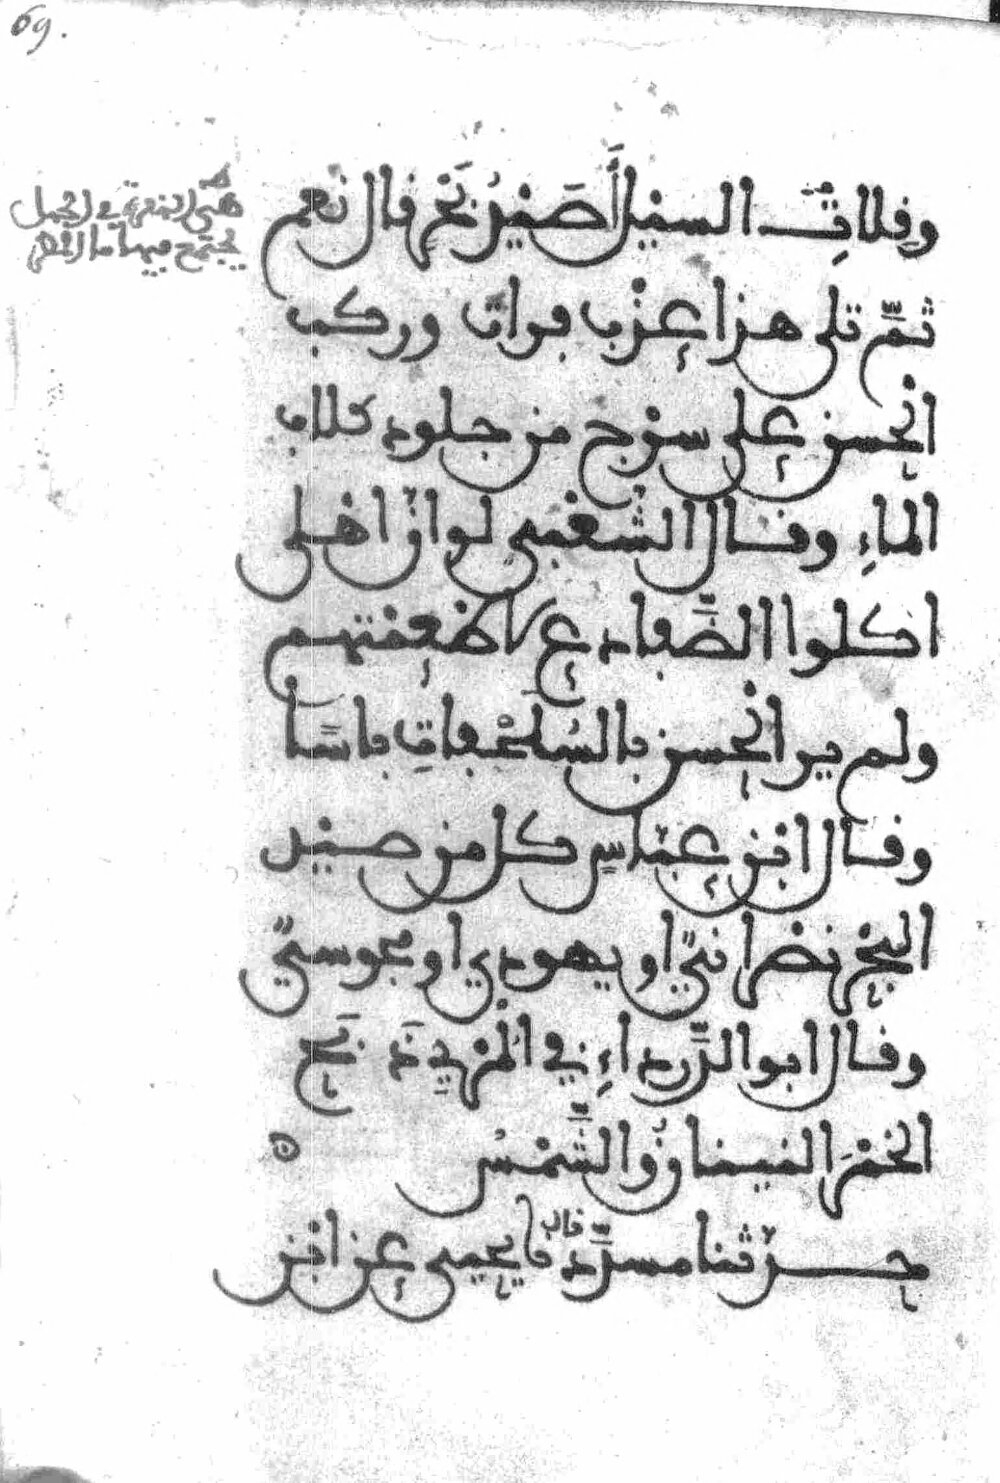 69.
وقلات السيل أصيد بحر قال نعم
هي النقرة في الجبل
يجتمع فيها ما المطر
ثم تلى هذا عذب فرات وركب
الحسن على سرج من جلود كلاب
الماء وقال الشعبي لو ان اهلي
اكلوا الضفادع لاطعمتهم
ولم ير الحسن بالسلحفات باسا
وقال ابن عباس كل من صيد
البحر نصراني او يهودي او مجوسي
وقال ابو الدرداء في المري ذبح
الخمر النينان والشمس ه
حدثنا مسدد قال نا يحيى عن ابن